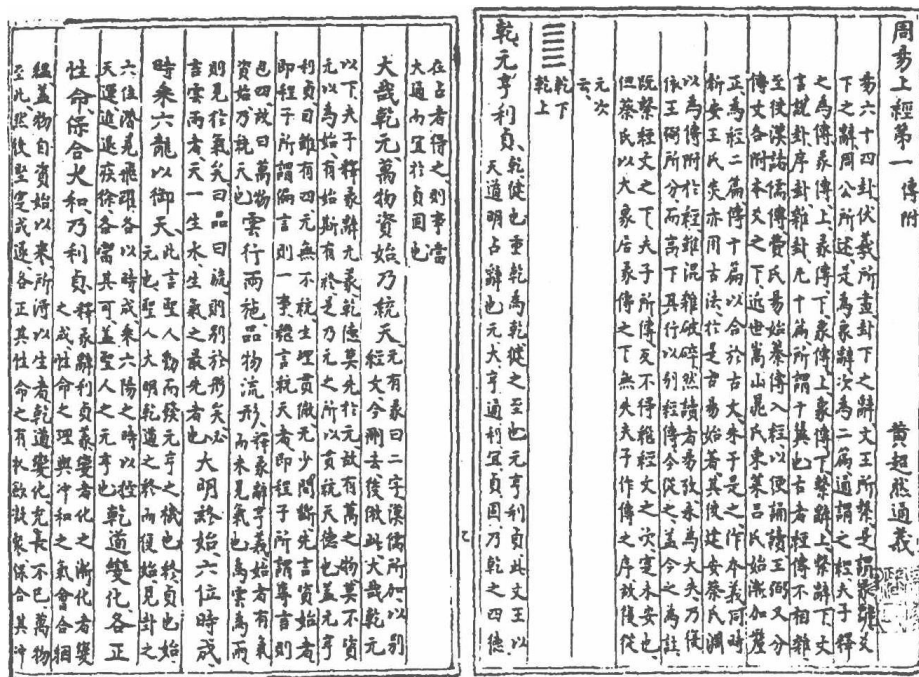 周易上經第一 傳附
黃超然通義
易六十四卦伏羲所畫卦下之辭文王所繫是謂彖辭爻
下之辭周公所述是為象辭次為二篇通謂之經夫子釋
之為傳彖傳上彖傳下象傳上象傳下繫辭上繫辭下文
言說卦序卦雜卦凡十篇所謂十翼也古者經傳不相雜
至後漢諸儒傳費氏易始綦傳入經以便誦讀王弼又分
傳文各附本爻之下近世嵩山晁氏東萊呂氏始漸加釐
正為經二篇傳十篇以合於古文朱子是之作本義同時
新安王氏炎亦用古法於是古易始著其後建安蔡氏淵
以為傳附於經雖混雜破碎然讀者易攷未為大失乃復
依王弼所分而高下其行以別經傳今從之蓋今之為註
既繫經文之下夫子所傳反不得繼經文之次寔未安也
但蔡氏以大象后彖傳之下無失夫子作傳之序故復從
元次
云
乾下
乾上
乾元亨利貞乾健也重乾為乾健之至也元亨利貞此文王以
天道明占辭也元大亨通利宜貞固乃乾之四德
在占者得之則事當
大通而宜於貞固也
大哉乾元萬物資始乃統天元有彖曰二字漢儒所加以別
經文今刪去後倣此大哉乾元
以下夫子釋彖辭元義乾德莫先於元故有萬之物莫不資
元以為始有始斯有終是乃元之所以貫統天德也蓋元亨
利貞目雖有四元無不統生理貫徹元少間斷先言資始者
即程子所謂偏言則一事繼言統天者即程子所謂專言則
包四故曰萬物
資始乃統天也
雲行雨施品物流形釋彖辭亨義始者有氣
而未見氣也為雲為雨
則見於氣矣曰品曰流則別於形矣必
言雲雨者天一生水生氣之最先者也
大明終始六位時成
時乘六龍以御天此言聖人動而發元亨之機也終貞也始
元也聖人大明乾道之終而復始見卦之
六位潛見飛躍各以時成乘六陽之時以控
天運進退疾徐各當其可蓋聖人之元亨也
乾道變化各正
性命保合大和乃利貞釋彖辭利貞義變者化之漸化者變
之成性命之理與沖和之氣會合絪
縕蓋物自資始以來所得以生者乾道變化允長不已萬物
至此然後堅寔成遂各正其性命之有於啟蟄象保合其沖